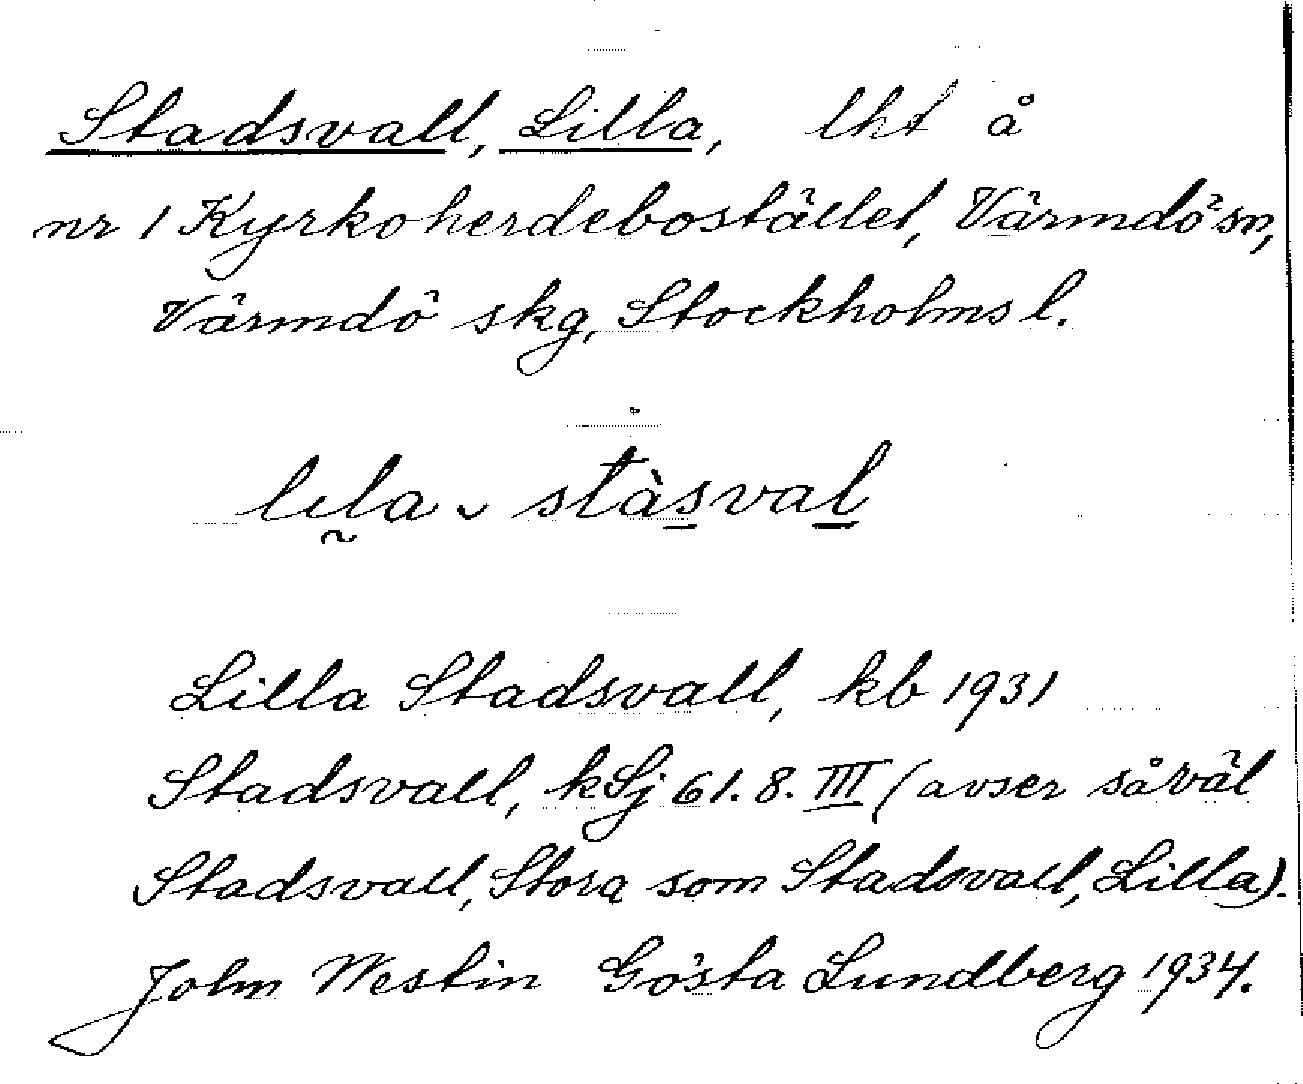 Stadsvall, Lilla, lht å
nr 1 Kyrkoherdebostället, Värmdö sn,
Värmdö skg, Stockholms l.
lıla ̮ stàsval
Lilla Stadsvall, kb 1931
Stadsvall, kSj 61. 8. III (avser såväl
Stadsvall, Stora som Stadsvall, Lilla).
John Westin Gösta Lundberg 1934.